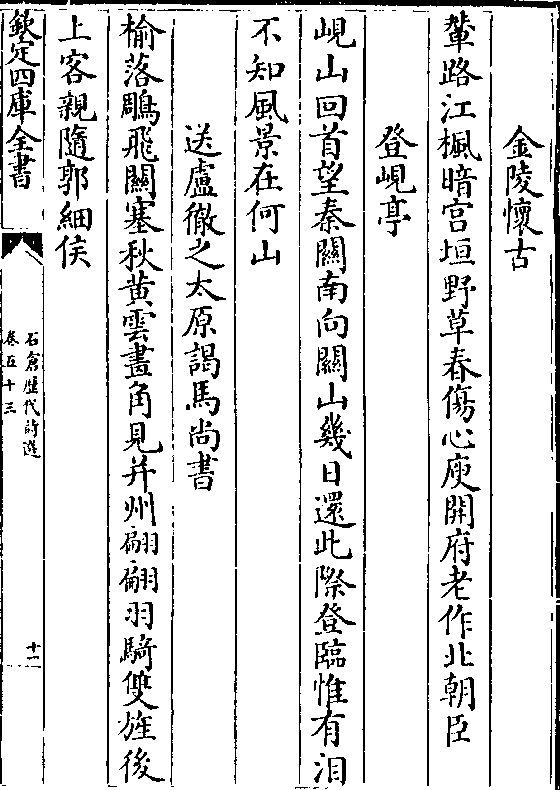 金陵懷古
輦路江楓暗宫垣野草春傷心庾開府老作北朝臣
登峴亭
峴山回首望秦關南向關山幾日還此際登臨惟有淚
不知風景在何山
送盧徹之太原謁馬尚書
榆落鵰飛關塞秋黄雲畫角見并州翩翩羽騎雙旌後
上客親隨郭細侯
欽定四庫全書
石倉歴代詩選
卷五十三
十一